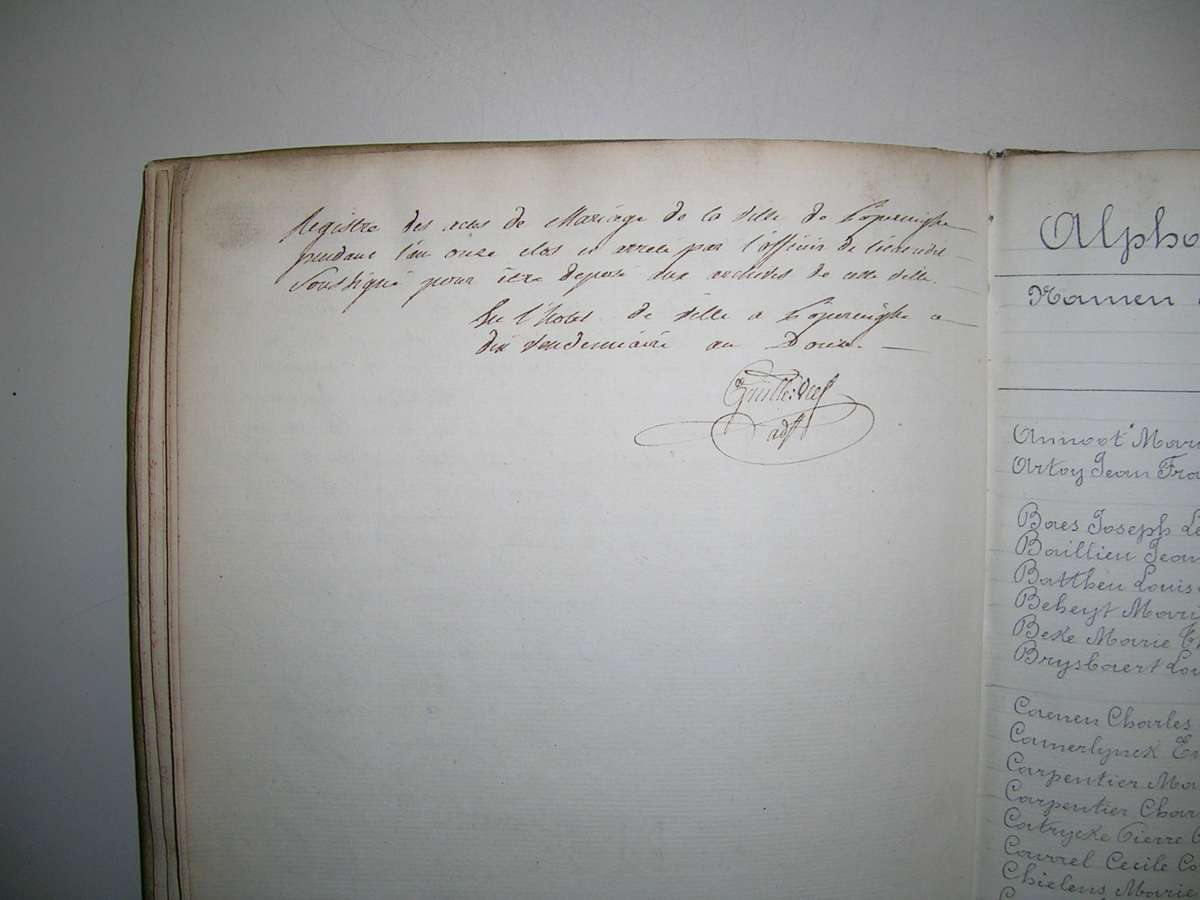 Registre des actes de Mariage de la ville de Poperinghe
pendant l'an onze clos et arreté par l'officier de l'etat civil
Soussigné pour être deposé aux archives de cette ville.
De l'hotel de ville a Poperinghe ce
dix vendemiaire an Douze.
adjt
Alpho
Namen
Annoot Mari
Artoy Jean Fra
Baes Joseph Le
Baillieu Jean
Battheu Louis
Beheyt Mari
Beke Marie Th
Brysbaert Lou
Caenen Charles
Camerlynck Em
Carpentier Ma
Carpentier Char
Catrycke Pierre
Courrel Cecile Co
Chielens Marie